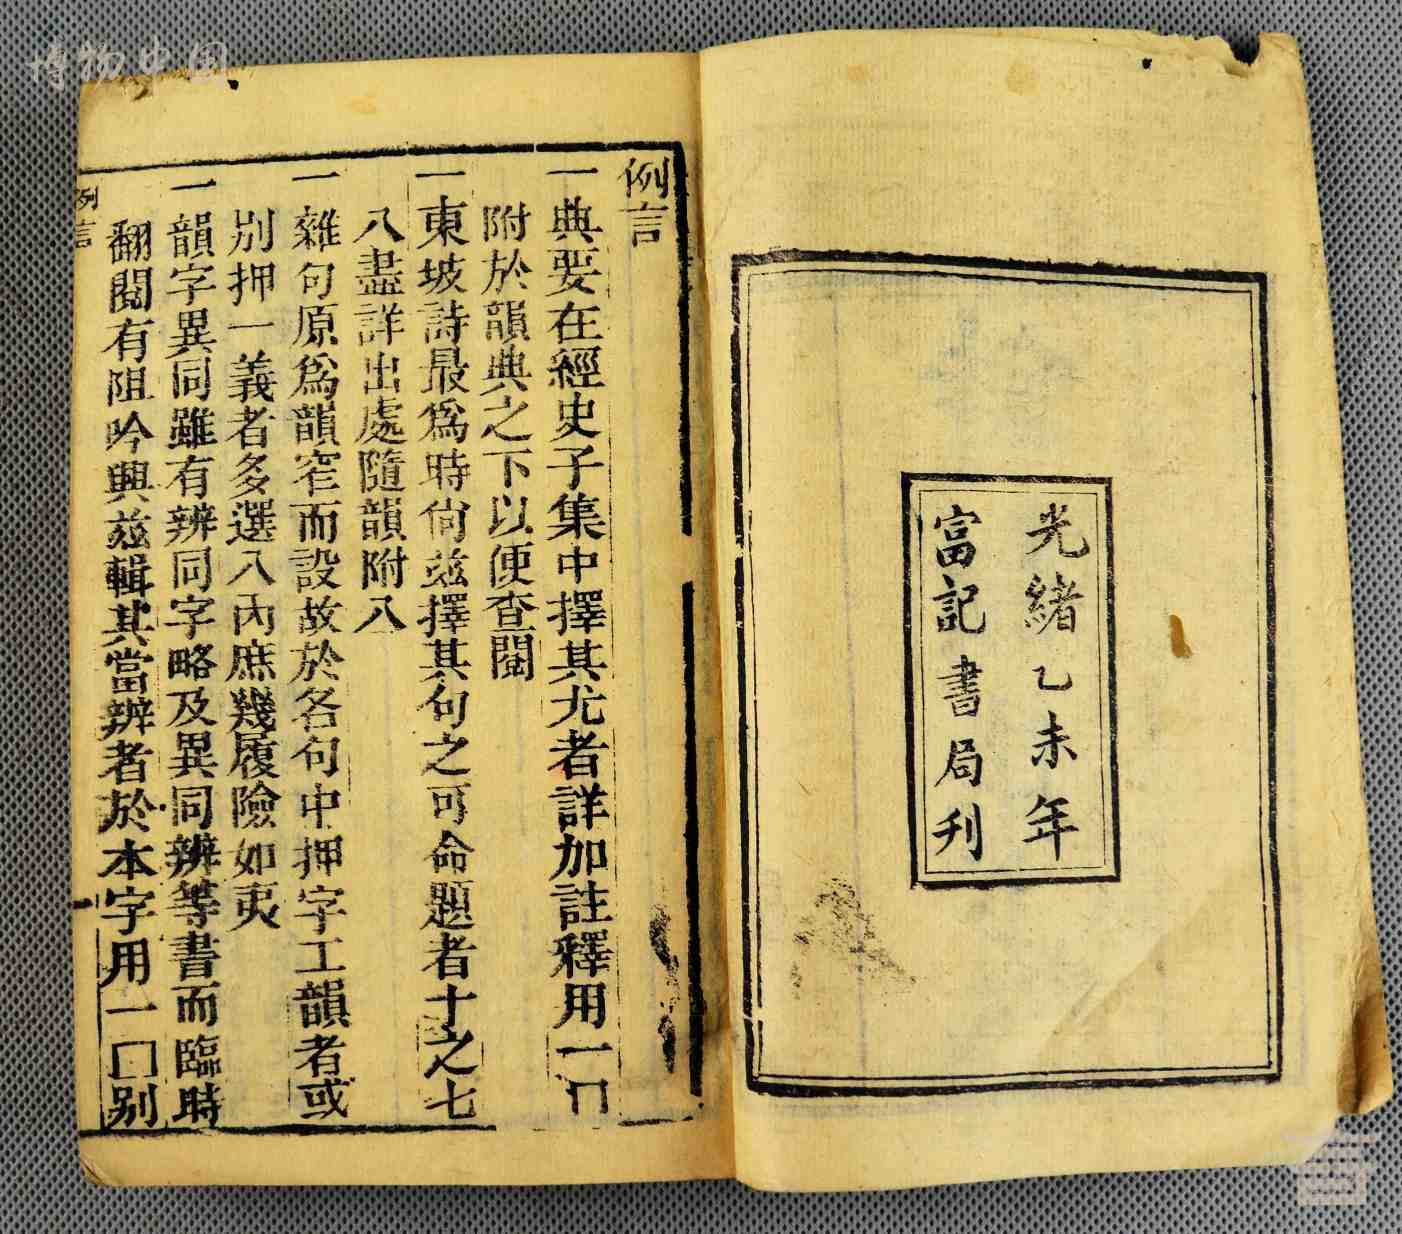 博物中国
光緒乙未年
富記書局刊
例言
一典要在經史子集中擇其尤者詳加註釋用一囗
附於韻典之下以便查閱
一東坡詩最爲時尙兹擇其句之可命題者十之七
八盡詳出處隨韻附入
一雜句原爲韻窄而設故於各句中押字工韻者或
別押一義者多選入內庶幾履險如夷
一韻字異同雖有辨同字略及異同辨等書而臨時
翻閱有阻吟興兹輯其當辨者於本字用一囗别
例言